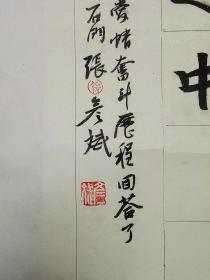 中
愛情奮斗歷程回答了
石門張彥斌